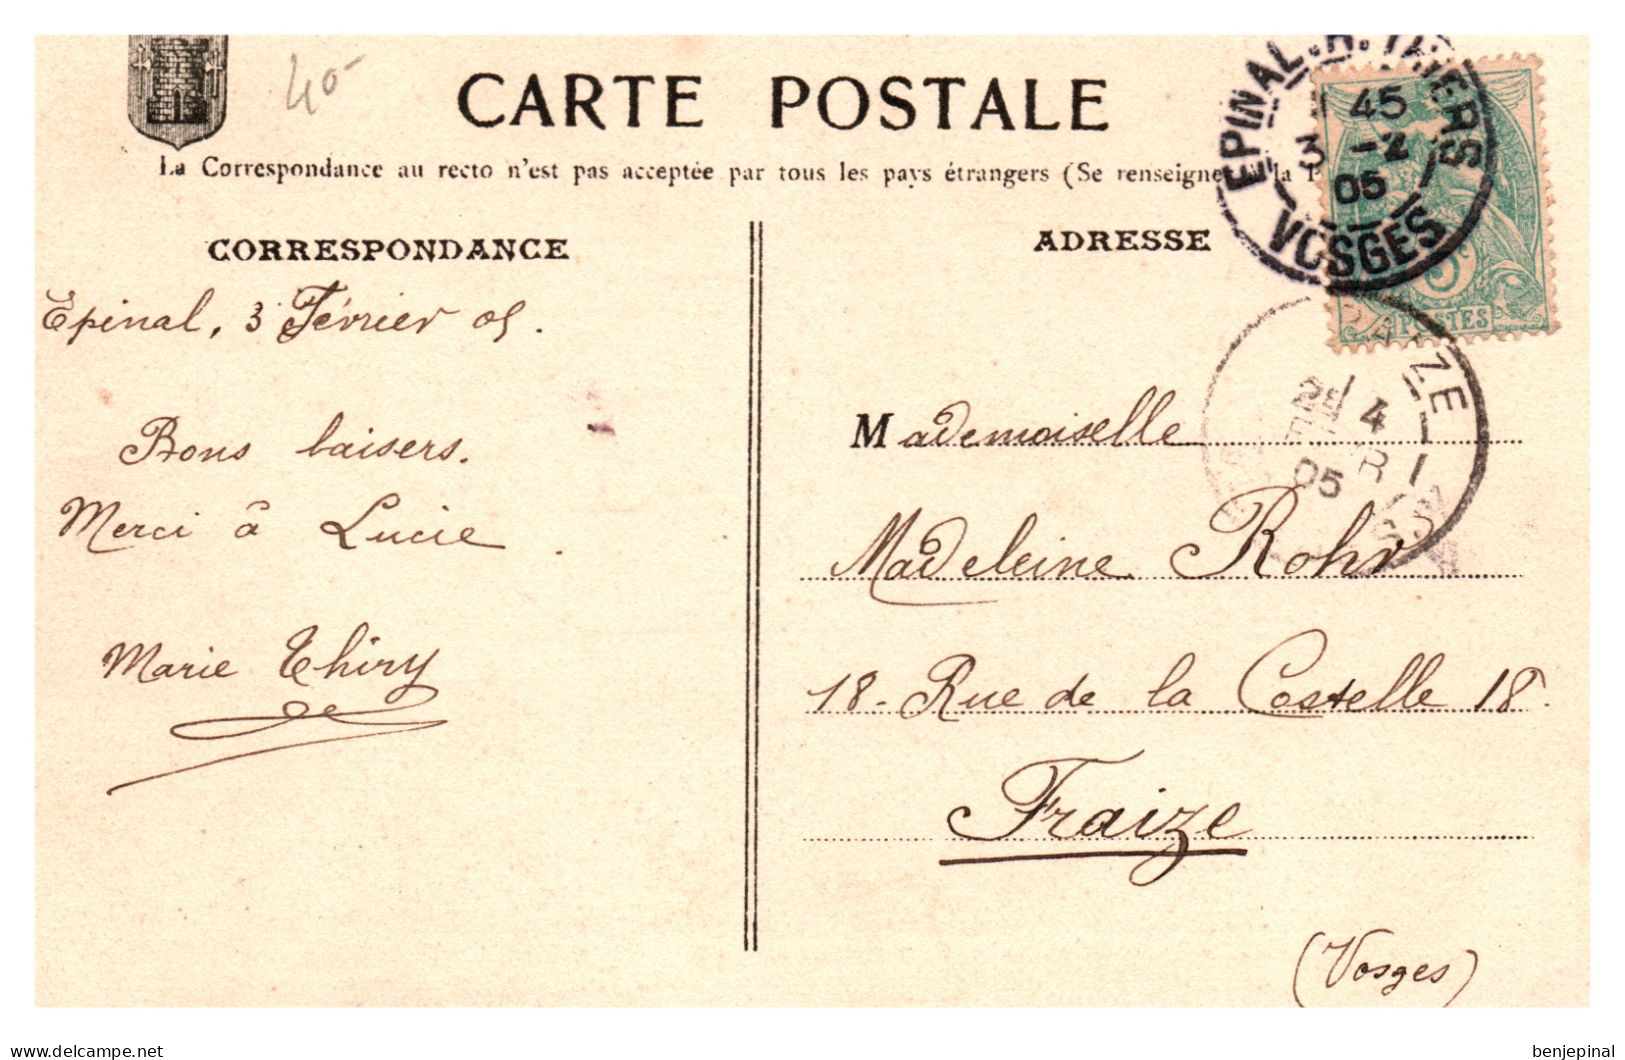 40-
CARTE POSTALE
La Correspondance au recto n'est pas acceptée par tous les pays étrangers (Se renseigner à la P
CORRESPONDANCE
ADRESSE
EPINAL.R.THIERS
45
3 -2
05
VOSGES
5c
POSTES
Epinal, 3 Février 05.
Bons baisers.
Merci à Lucie.
Marie Thiry
Mademoiselle
Madeleine Rohr
18 - Rue de la Costelle 18.
Fraize
(Vosges)
AIZE
4
05
www.delcampe.net
benjepinal